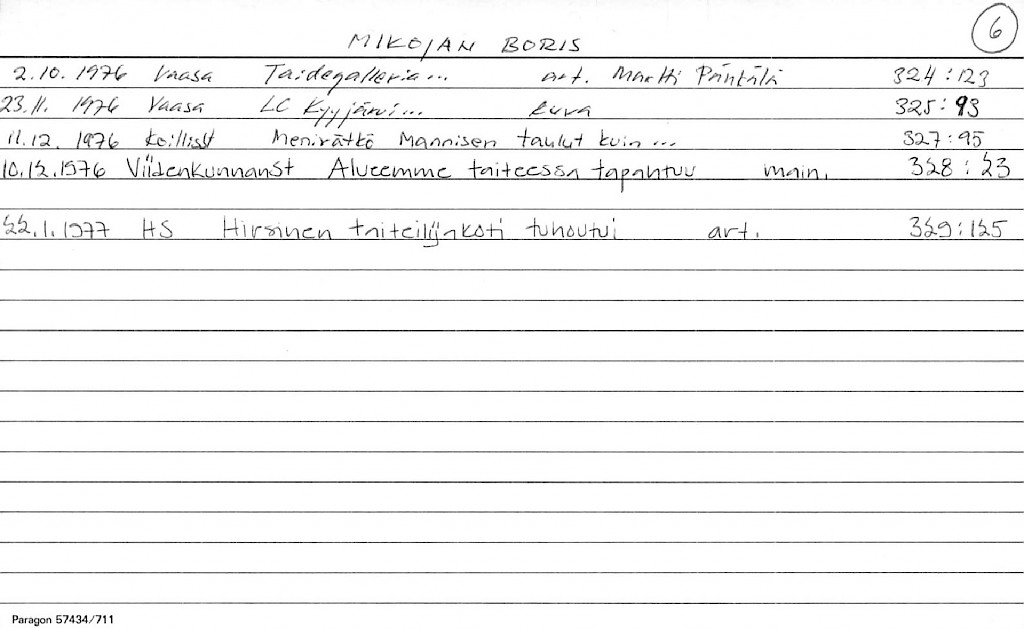 6
MIKOJAN BORIS
2.10. 1976 Vaasa Taidegalleria... art. Martti Päntälä 324:123
23.11. 1976 Vaasa LC Kyyjärvi... kuva 325:93
11.12. 1976 Koillisst Menivätkö Mannisen taulut kuin... 327:95
10.12.1976 Viidenkunnanst Alueemme taiteessa tapahtuu main. 328:23
22.1.1977 HS Hirsinen taiteilijakoti tuhoutui art. 329:125
Paragon 57434/711